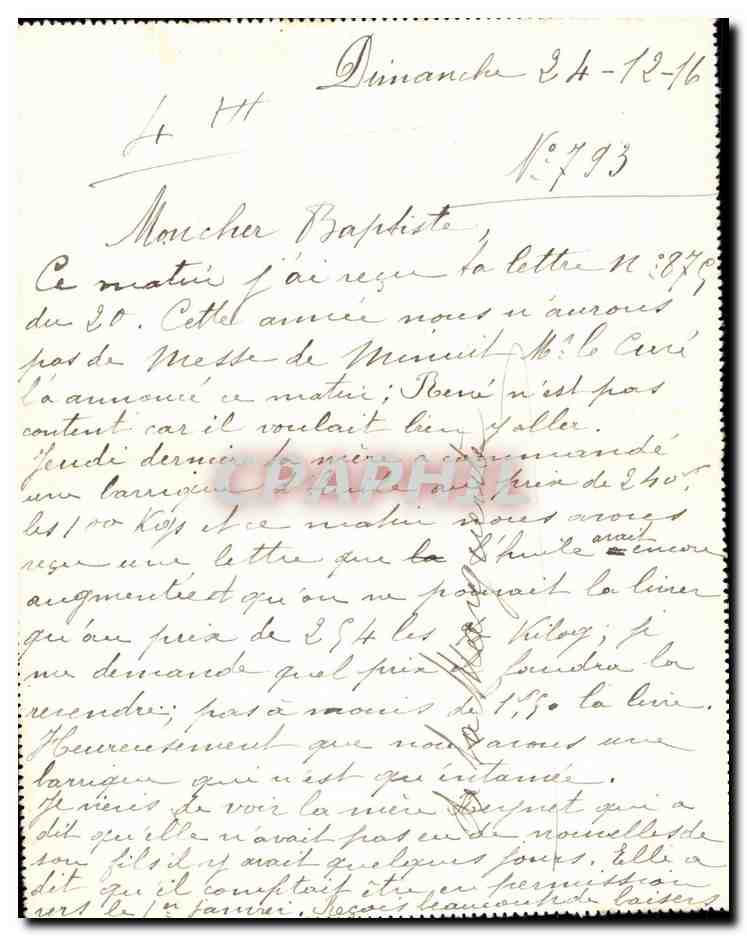 Dimanche 24-12-16
4 H
N° 793
Mon cher Baptiste,
Ce matin j'ai reçu ta lettre N° 875
du 20. Cette année nous n'aurons
pas de Messe de Minuit Mr le Curé
l'a annoncé ce matin; René n'est pas
content car il voulait bien y aller.
Jeudi dernier ta mère a commandé
une barrique d'huile au prix de 240f
les 100 Kgs et ce matin nous avons
reçu une lettre que l'huile avait encore
augmenté et qu'on ne pouvait la livrer
qu'au prix de 254 les Kilog; je
me demande quel prix il faudra la
revendre; pas à moins de 1f50 la livre.
Heureusement que nous avons une
barrique qui n'est qu'entamée.
Je viens de voir la mère qui a
dit qu'elle n'avait pas eu de nouvelles de
son fils il y avait quelques jours. Elle a
dit qu'il comptait être en permission
vers le 1er janvier. Reçois beaucoup de baisers
de ta Marguerite
CPAPHIL